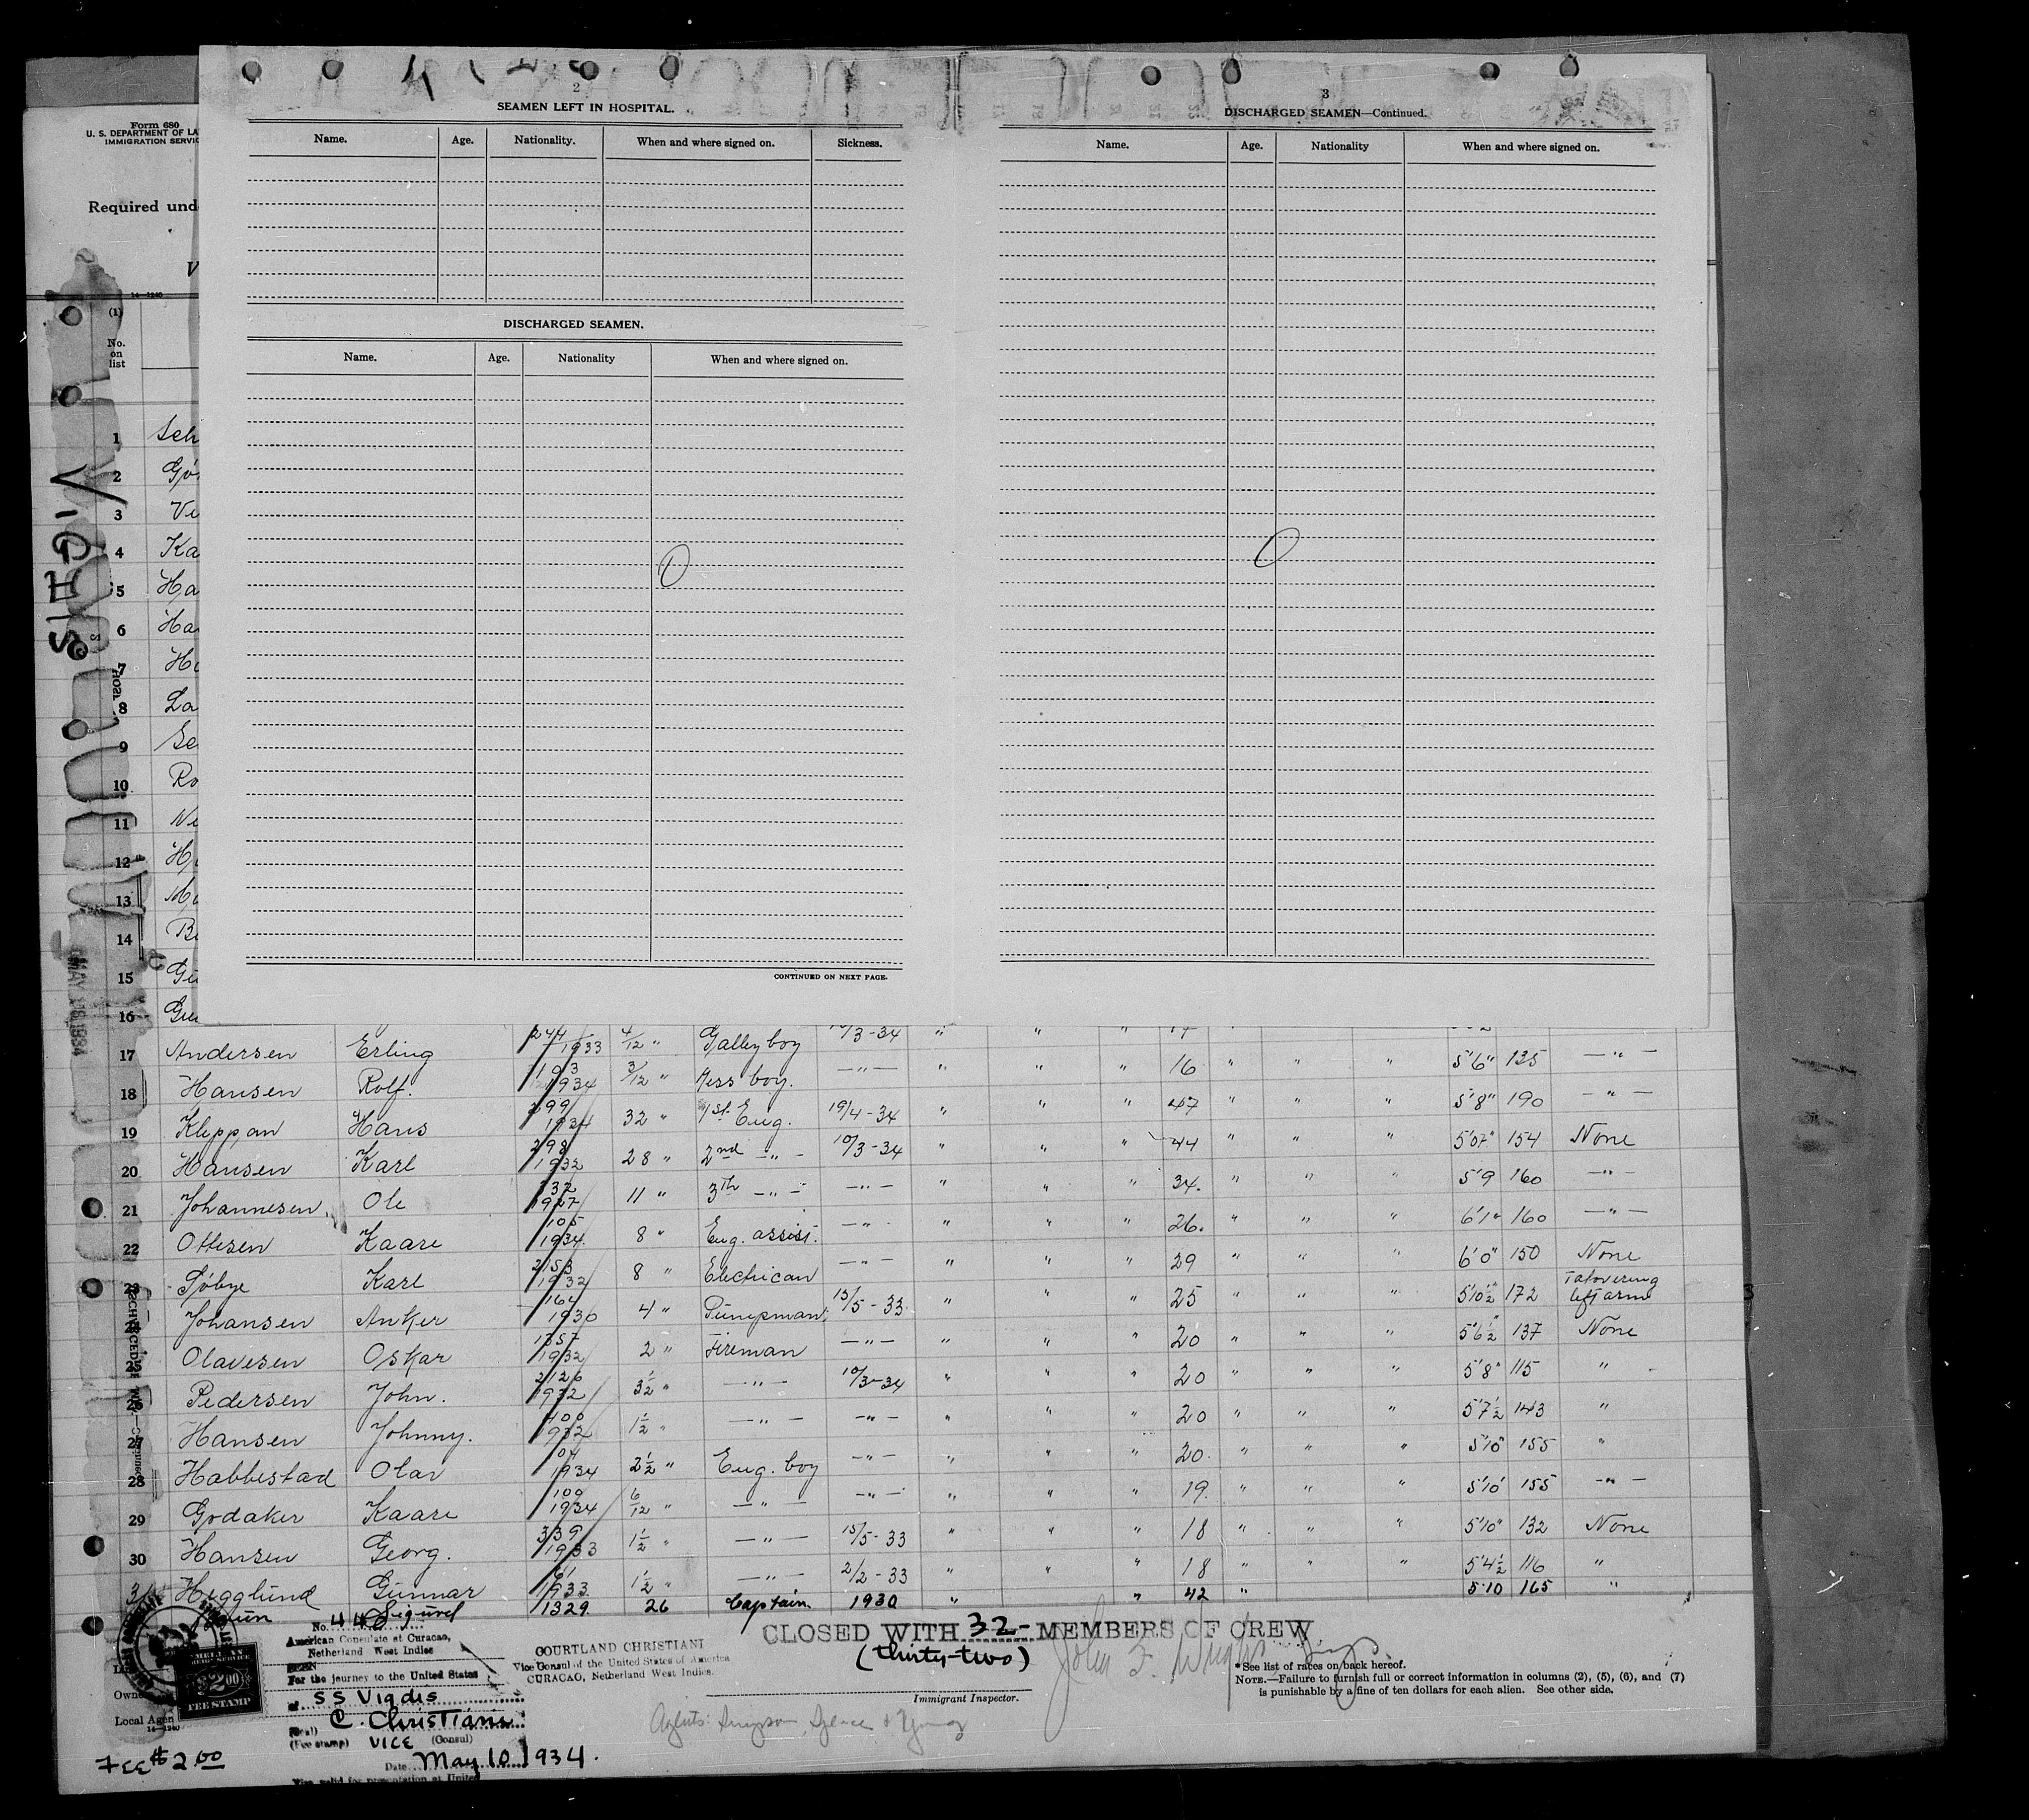 2
SEAMEN LEFT IN HOSPITAL.
Name. Age. Nationality. When and where signed on. Sickness.
DISCHARGED SEAMEN.
Name. Age. Nationality When and where signed on.
CONTINUED ON NEXT PAGE.
3
DISCHARGED SEAMEN—Continued.
Name. Age. Nationality When and where signed on.
Form 680
U. S. DEPARTMENT OF LA
IMMIGRATION SERVIC
Required und
V
14—1240
(1)
No.
on
list
VIGDIS
MAY 18 1934
1 Sch
2 Gjø
3 Ve
4 Ka
5 Ha
6 Ha
7 Ha
8 La
9 Se
10 Ro
11 Ne
12 Ha
13 Mo
14 Be
15 Gu
16 Gu
17 Andersen Erling 244/1933 4/12 " Galley boy 10/3-34 " " " 17
18 Hansen Rolf. 103/1934 3/12 " Mess boy. —"— " " " 16 " " " 5'6" 135 —"—
19 Kleppan Hans 299/1934 32 " 1st Eng. 19/4-34 " " " 47 " " " 5'8" 190 —"—
20 Hansen Karl 298/1932 28 " 2nd —"— 10/3-34 " " " 44 " " " 5'07" 154 None
21 Johannesen Ole 332/1927 11 " 3th —"— —"— " " " 34. " " " 5'9 160 —"—
22 Ottesen Kaare 105/1934. 8 " Eng. assist. —"— " " " 26. " " " 6'1" 160 —"—
23 Søbye Karl 2153/1932 8 " Electrican —"— " " " 29 " " " 6'0" 150 None
24 Johansen Anker 164/1930 4 " Pumpman 15/5-33 " " " 25 " " " 5'10½" 172 Tatovering left arm
25 Olavesen Oskar 1357/1932 2 " Fireman —"— " " " 20 " " " 5'6½" 137 None
26 Pedersen John. 2126/1932 3½ " —"— 10/3-34 " " " 20 " " " 5'8" 115 "
27 Hansen Johnny. 400/1932 1½ " —"— —"— " " " 20 " " " 5'7½ 143 "
28 Habbestad Olav 104/1934 2½ " Eng. boy —"— " " " 20. " " " 5'10" 155 "
29 Godaker Kaare 100/1934 6/12 " —"— —"— " " " 19. " " " 5'10' 155 —"—
30 Hansen Georg. 339/1933 1½ " —"— 15/5-33 " " " 18 " " " 5'10" 132 None
31 Hegglund Gunnar 61/1933. 1½ " —"— 2/2-33 " " " 18 " " " 5'4½ 116 "
Sigurd 1329. 26 Captain 1930 " " 42 " 5'10 165 "
CLOSED WITH 32- MEMBERS OF CREW
(thirty-two)
John F. Wright
Immigrant Inspector.
*See list of races on back hereof.
NOTE.—Failure to furnish full or correct information in columns (2), (5), (6), and (7)
is punishable by a fine of ten dollars for each alien. See other side.
No. 440
American Consulate at Curacao,
Netherland West Indies
SEEN
For the journey to the United States
of SS Vigdis
C. Christiani
(Seal)
(Fee stamp) VICE (Consul)
Date May 10 1934.
COURTLAND CHRISTIANI
Vice Consul of the United States of America
CURACAO, Netherland West Indies.
$2.00
FEE STAMP
Owne
Local Agen
14—1240
FEE $2.00
Agents: Simpson, Spence & Young